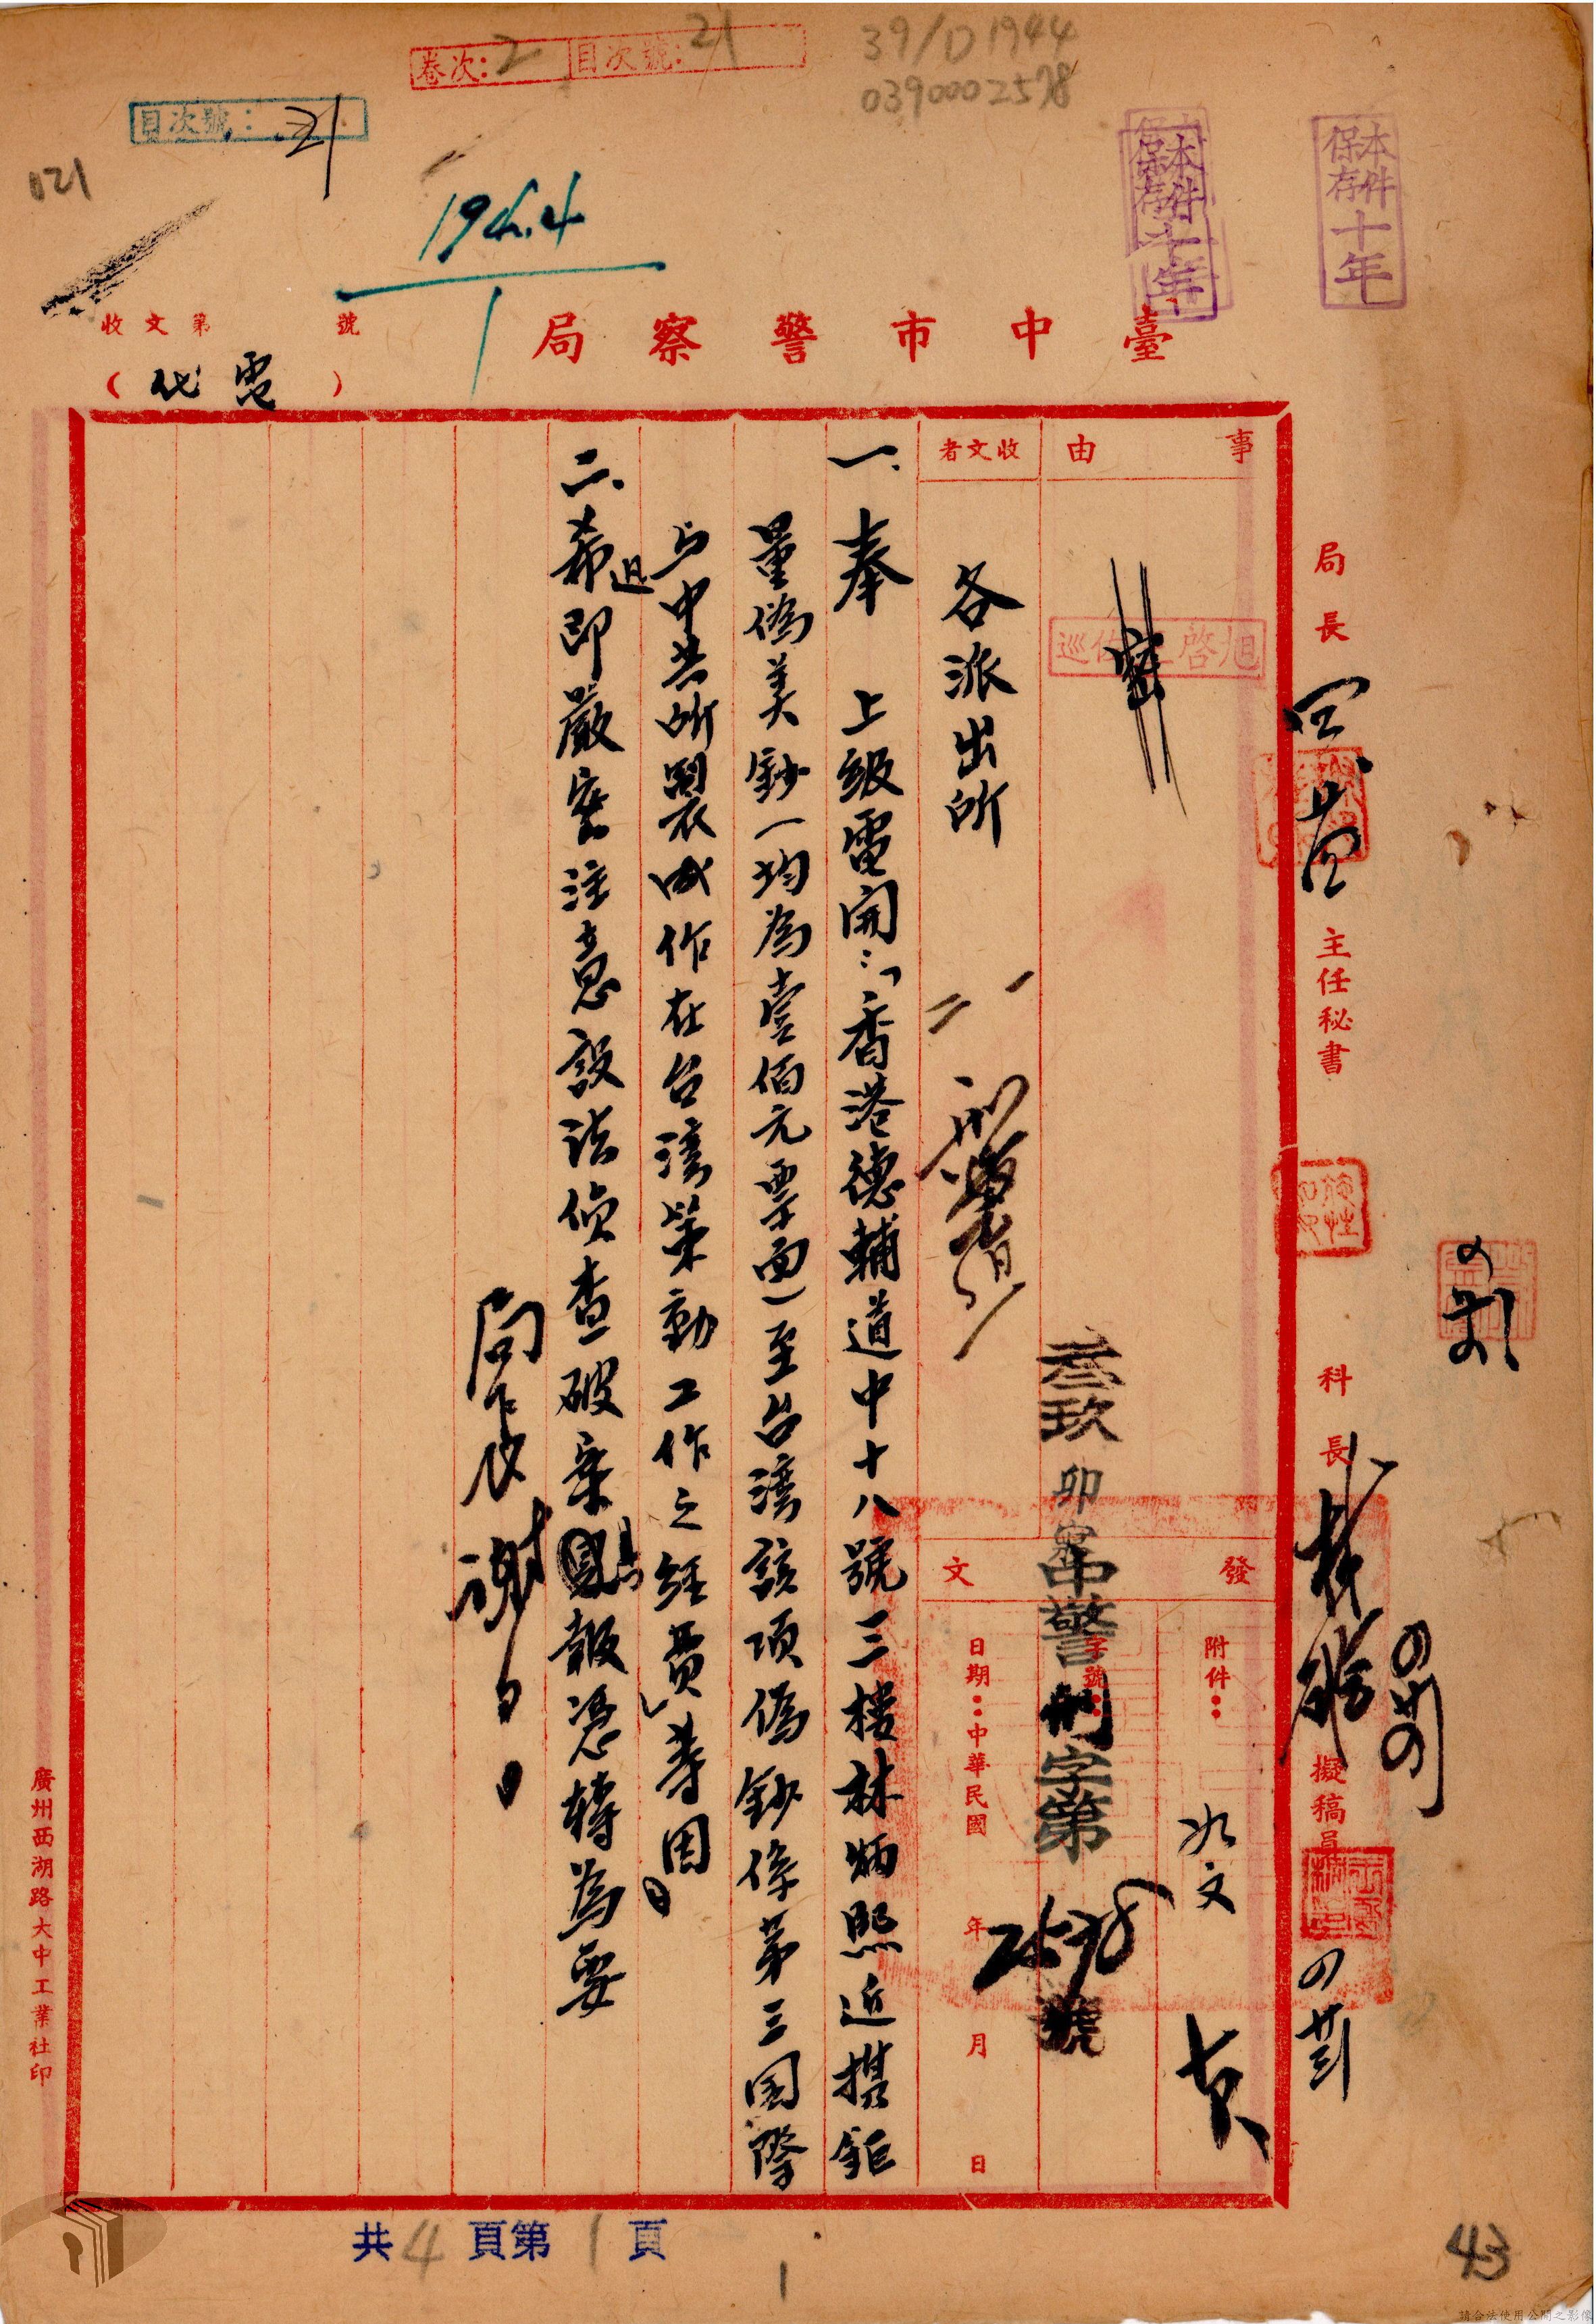 卷次：2 目次號：21
39/D1944
0390002578
目次號：21
121
194.4
1
本件保存十年
本件保存十年
收文第 號
（代電）
臺中市警察局
事由
收文者
密
各派出所
一、奉 上級電開：「香港德輔道中十八號三樓林炳熙近攜鉅
量偽美鈔（均為壹佰元票面）至台灣該項偽鈔係第三国際
与中共所製成作在台灣策動工作之經費」等因
二、希迅即嚴密注意設法偵查破案具報憑轉為要
局長
發文
附件：
如文
字號：
叁玖卯 中警刑字第2578號
日期：中華民國 年 月 日
局長
主任秘書
科長
擬稿員
廣州西湖路大中工業社印
共4頁第1頁
1
43
請合法使用公開之影像